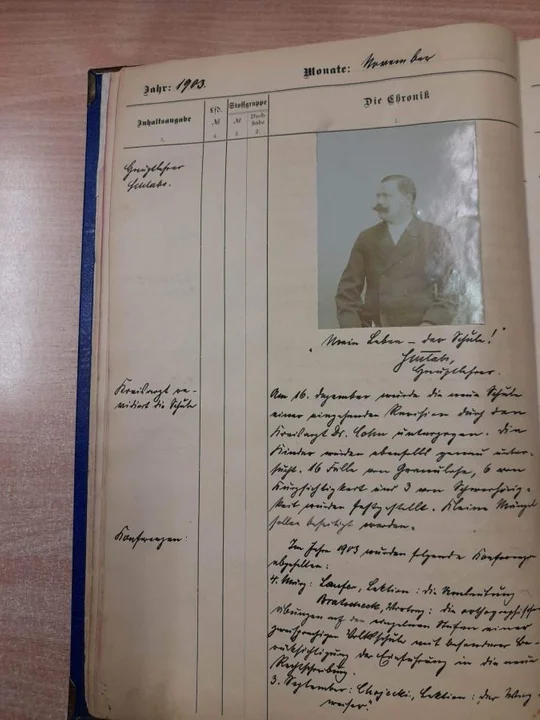 Jahr: 1903.
Monate: November
Inhaltsangabe
Lfd. №
Stoffgruppe
№
Buchstabe
Die Chronik
3.
4.
3.
2.
1.
Hauptlehrer
"Mein Leben – der Schule!"
Hauptlehrer.
Kreisarzt re-
vidiert die Schule
Am 16. Dezember wurde die neue Schule
einer eingehenden Revision durch den
Kreisarzt Dr. Cohn unterzogen. Die
Kinder wurden ebenfalls genau unter-
sucht. 16 Fälle von Granulose, 6 von
Kurzsichtigkeit und 3 von Schwerhörig-
keit wurden festgestellt. Kleine Mängel
sollen beseitigt werden.
Konferenzen:
Im Jahre 1903 wurden folgende Konferenzen
abgehalten:
4. März: Laufer, Lektion: die
Vortrag: die orthographischen
Übungen auf den einzelnen Stufen einer
Volksschule mit besonderer Be-
rücksichtigung der Einführung in die neue
Rechtschreibung.
3. September: Chojecki, Lektion: "der Weg-
weiser"